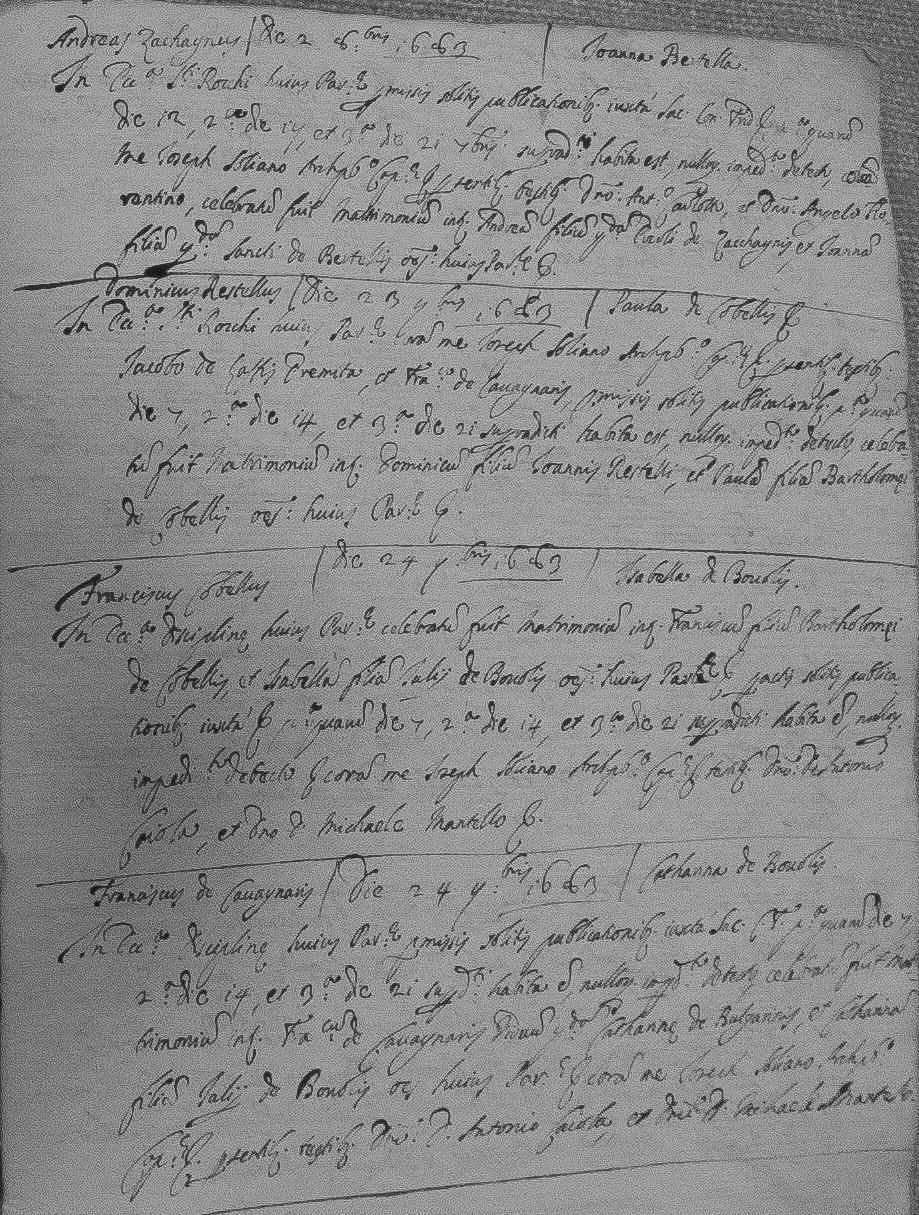 Andreas Zachaynus die 2 8.bris 1663 Joanna Bestella.
In Ecc.a S.ti Rochi huius Par.e pmissis solitis publicationib. iuxta Sac. Con. Trid. quarum
die 12, 2.a die 14, et 3.a die 21 7bris supradi habita est, nulloq. imped.to detecto, coram
me Joseph Soliano Archipb.o psentib. testib. Dno. Ant.o et Dno. Angelo Flo
rentino, celebratu fuit Matrimoniu int. Andrea filiu Pauli de Zacchaynis et Joanna
filia Sancti de Bestellis oes. huius Par.e
Dominicus Restellus die 23 7bris 1663 Paula de Cobellis
In Ecc.a S.ti Rochi huius Par.e cora me Joseph Soliano Archipb.o psentib. testib.
Jacobo de Eremita, et Fra.co de Cavaynaris, pmissis solitis publicationib. quaru
die 7, 2.a die 14, et 3.a die 21 supradicti habita est, nulloq. imped.to detecto, celebra
tu fuit Matrimoniu int. Dominicu filiu Joannis Restelli, et Paula filia Bartholomei
de Cobellis oes. huius Par.e
Franciscus Cobellus die 24 7bris 1663 Isabella de Boudis.
In Ecc.a Disciplinae huius Par.e celebratu fuit Matrimoniu int. Franciscu filiu Bartholomei
de Cobellis, et Isabella filia Julij de Boudis oes. huius Par.e factis solitis publica
tionib. iuxta quaru die 7, 2.a die 14, et 3.a die 21 supradicti habita e, nulloq.
impedi.to detecto cora me Joseph Soliano Archipb.o testib. Dno. Antonio
Caiola, et Dno D. Michaele Mantello
Franciscus de Cavaynaris die 24 7bris 1663 Catharina de Boudis.
In Ecc.a Disciplinae huius Par.e pmissis solitis publicationib. iuxta Sac. C. T. quaru die 7
2.a die 14, et 3.a die 21 supd.ti habita e, nulloq. impd.to detecto celebratu fuit Ma
trimoniu int. Fra.cu de Cavaynaris Viduu Catharinae de et Catharina
filia Julij de Boudis oes huius Par.e cora me Joseph Soliano Archipb.o
psentib. testib. Dno. D. Antonio Caiola, et Dno D. Michaele Mantello.